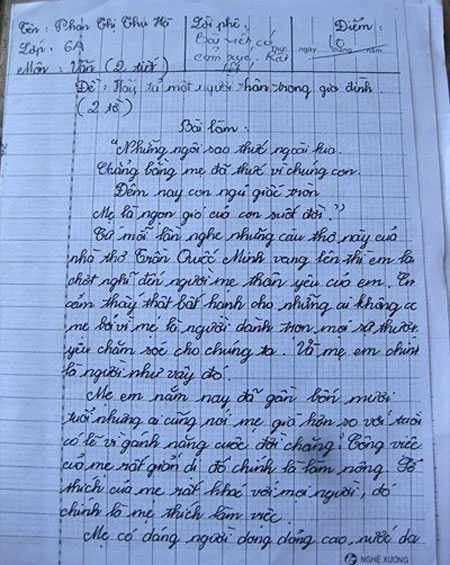 Tên: Phan Thị Thu Hà
Lớp: 6A
Môn: Văn (2 tiết)
Lời phê:
Bài viết có
cảm xúc. Rất
tốt
Điểm:
10
Thực ngày tháng năm
Đề: Hãy tả một người thân trong gia đình.
(2 tờ)
Bài làm:
"Những ngôi sao thức ngoài kia.
Chẳng bằng mẹ đã thức vì chúng con.
Đêm nay con ngủ giấc tròn
Mẹ là ngọn gió của con suốt đời."
Cứ mỗi lần nghe những câu thơ này của
nhà thơ Trần Quốc Minh vang lên thì em lại
chợt nghĩ đến người mẹ thân yêu của em. Em
cảm thấy thật bất hạnh cho những ai không có
mẹ bởi vì mẹ là người dành trọn mọi sự thương
yêu chăm sóc cho chúng ta. Và mẹ em chính
là người như vậy đó.
Mẹ em năm nay đã gần bốn mươi
tuổi nhưng ai cũng nói mẹ già hơn so với tuổi
có lẽ vì gánh nặng cuộc đời chăng? Công việc
của mẹ rất giản dị đó chính là làm nông. Sở
thích của mẹ rất khác với mọi người, đó
chính là mẹ thích làm việc.
Mẹ có dáng người dong dỏng cao, nước da
NGHỆ XƯƠNG